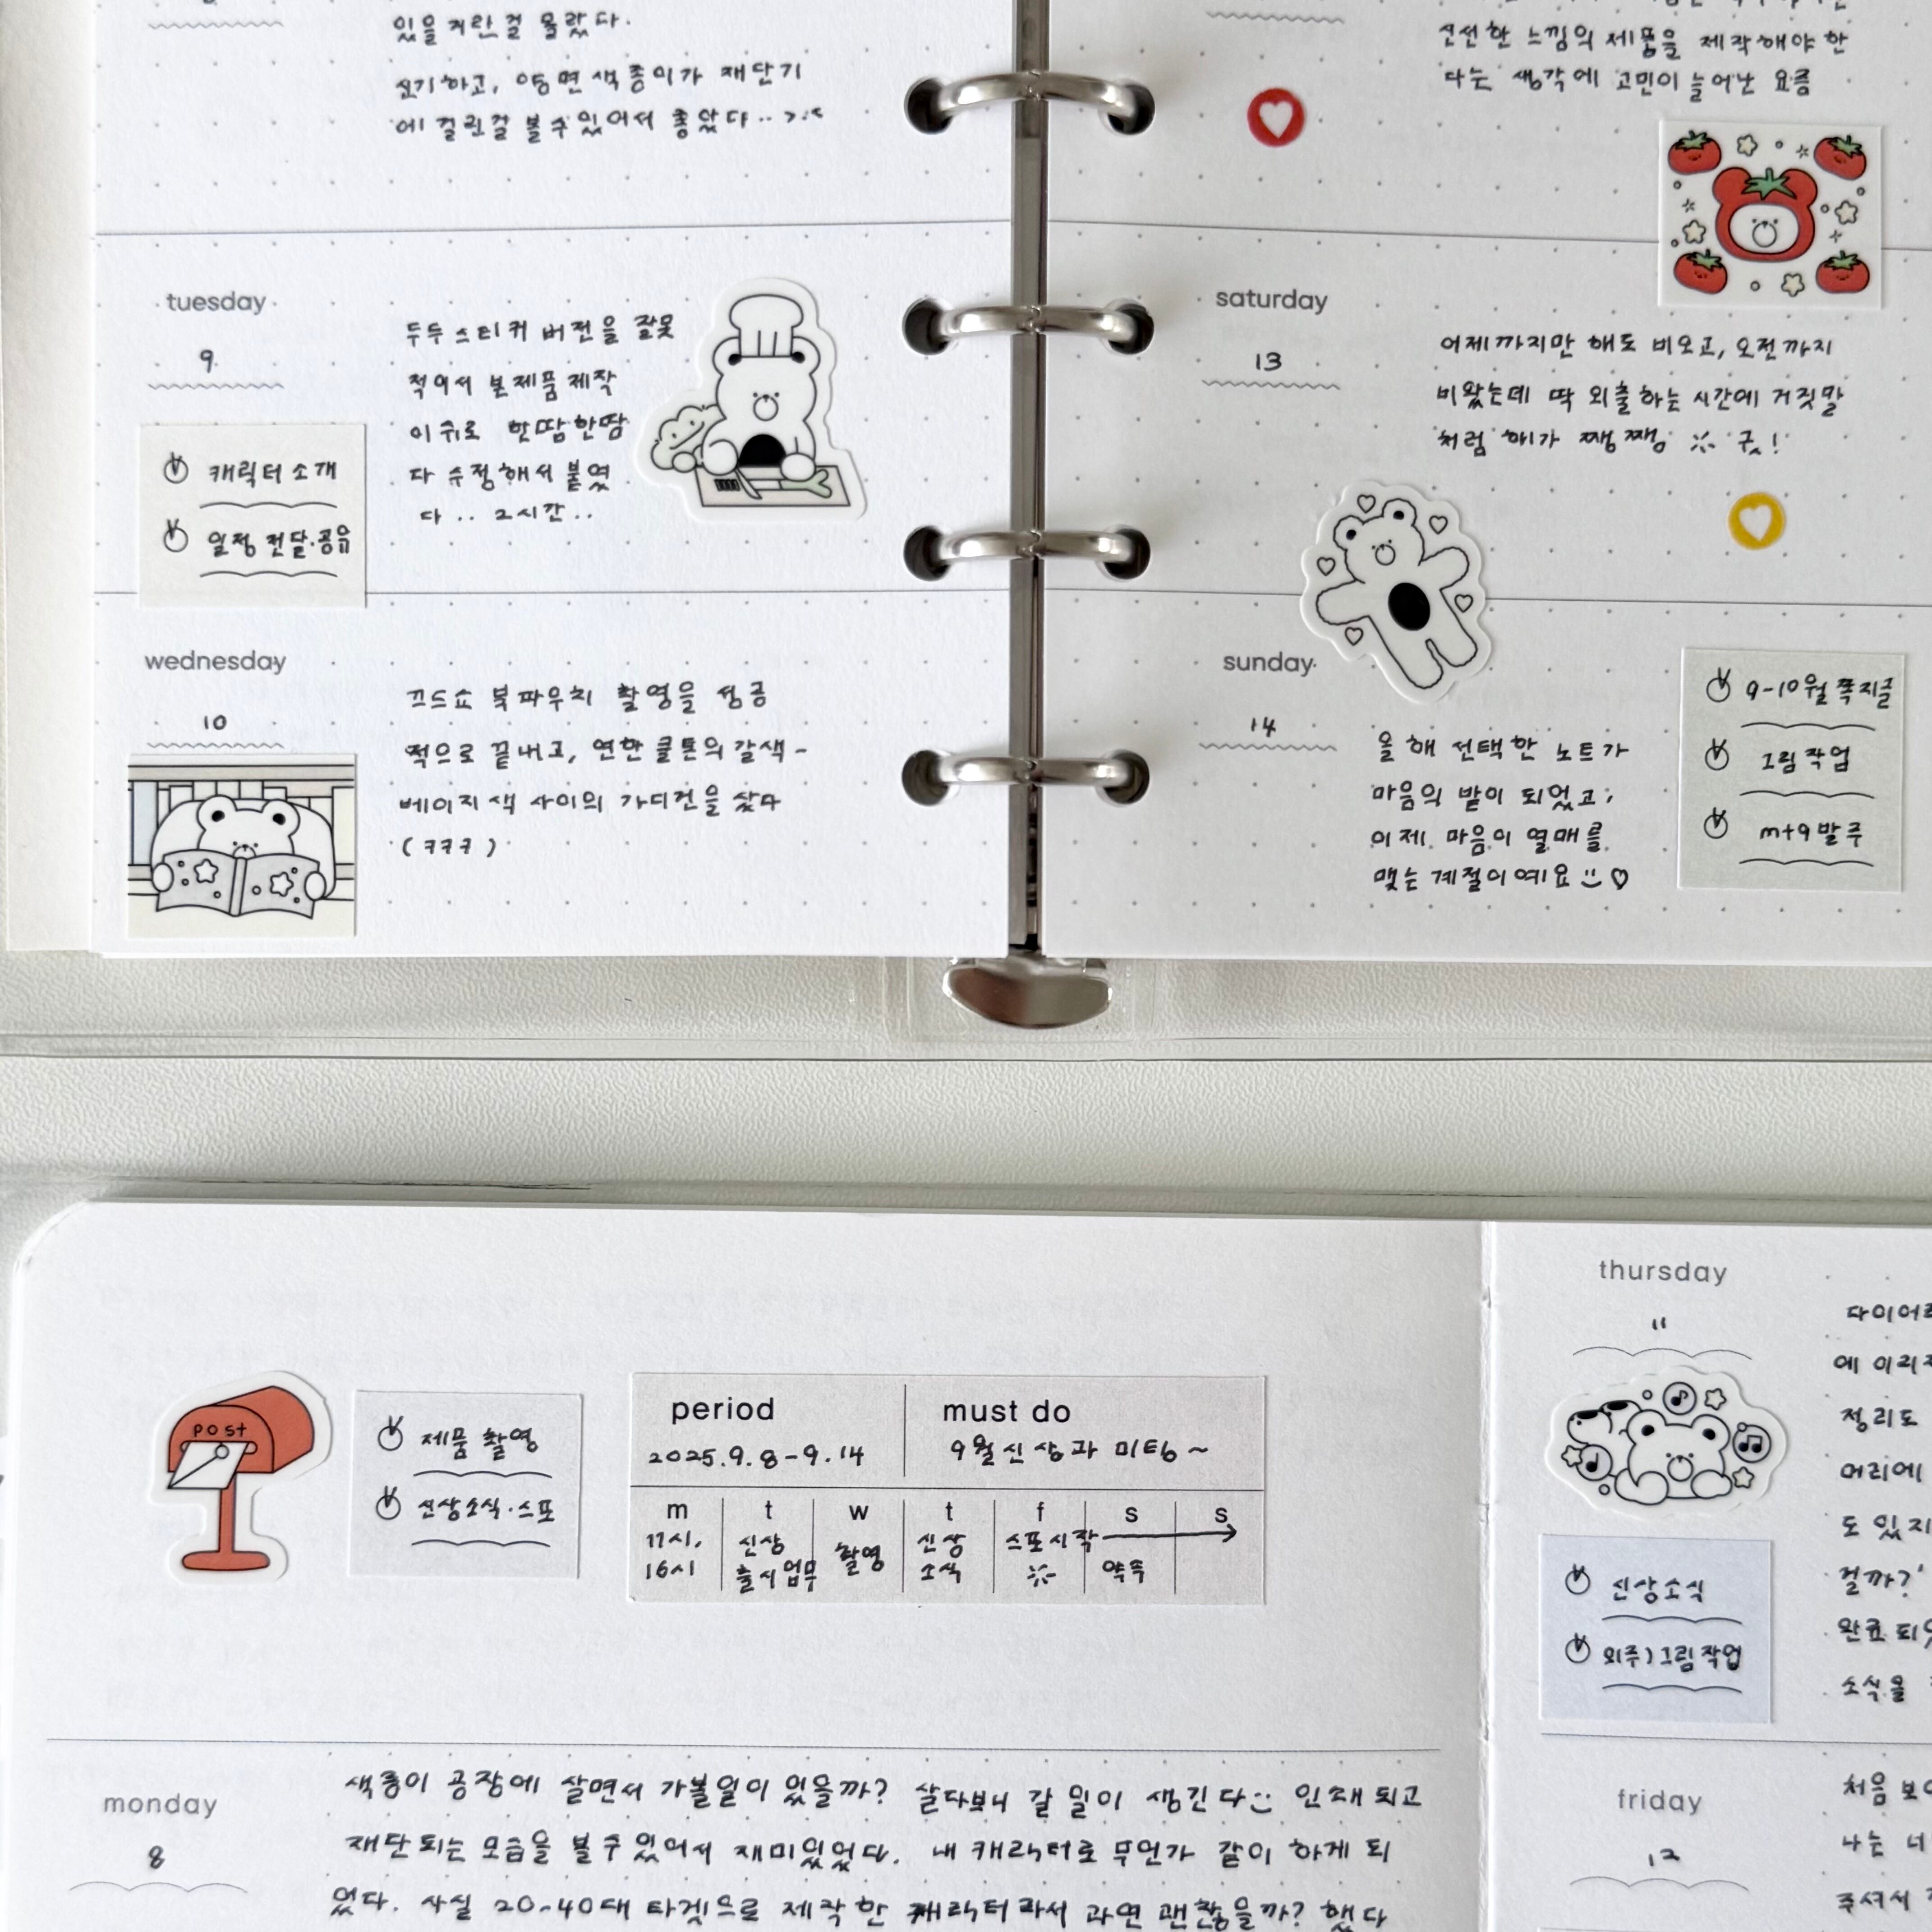 있을거란걸 몰랐다.
신기하고, 양면색종이가 재단기
에 걸린걸 볼수있어서 좋았다..>:<
tuesday
9
캐릭터소개
일정 전달·공유
두두스티커 버전을 잘못
적어서 본제품제작
이후로 한땀한땀
다 수정해서 붙였
다..2시간..
wednesday
10
끄드쇼 북파우치 촬영을 성공
적으로 끝내고, 연한 쿨톤의 갈색-
베이지색 사이의 가디건을 샀다
(ㅋㅋㅋ)
신선한 느낌의 제품을 제작해야 한
다는 생각에 고민이 늘어난 요즘
saturday
13
어제까지만 해도 비오고, 오전까지
비왔는데 딱 외출하는 시간에 거짓말
처럼 해가 쨍쨍 굿!
sunday
14
올해 선택한 노트가
마음의 밭이 되었고,
이제 마음이 열매를
맺는 계절이에요 ♡
9-10월 쪽지글
그림작업
m+9발주
post
제품 촬영
신상소식·스포
period
2025.9.8-9.14
must do
9월신상과 미팅~
m t w t f s s
11시, 신상 촬영 신상 스포시작
16시 출시업무 소식 약속
monday
8
색종이 공장에 살면서 가볼일이 있을까? 살다보니 갈 일이 생긴다 인쇄되고
재단되는 모습을 볼수있어서 재미있었다. 내 캐릭터로 무언가 같이 하게 되
었다. 사실 20-40대 타겟으로 제작한 캐릭터라서 과연 괜찮을까? 했다
thursday
11
신상소식
외주)그림작업
다이어리
에 이리저
정리도
머리에
도 있지
걸까?'
완료되었
소식을
friday
12
처음 보
나는 너
주셔서